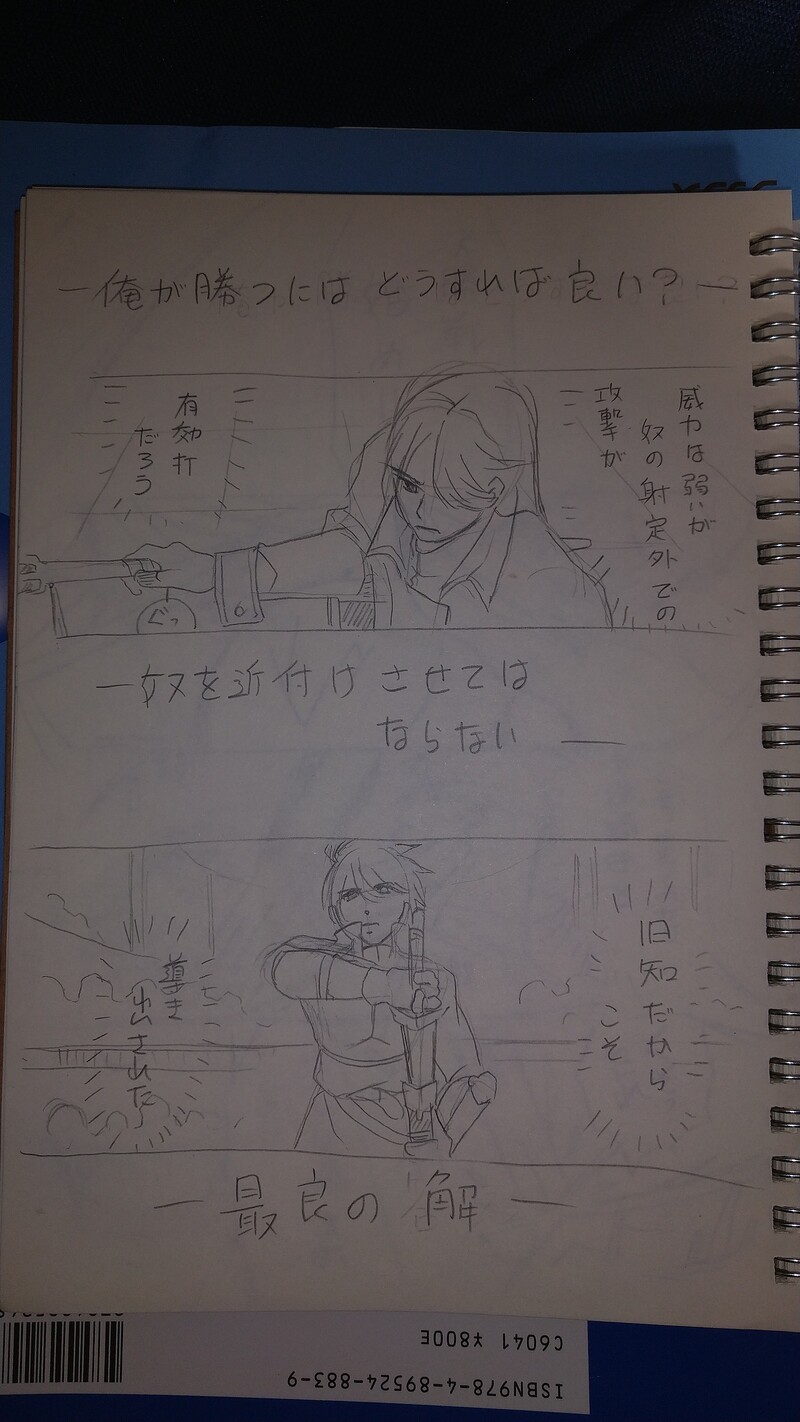 —俺が勝つには どうすれば良い?—
威力は弱いが
奴の射定外での
攻撃が
有効打
だろう
ぐっ
—奴を近付けさせては
ならない —
旧知だから
こそ
導き
出された
—最良の解—
C6041 ¥800E
ISBN978-4-89524-883-9